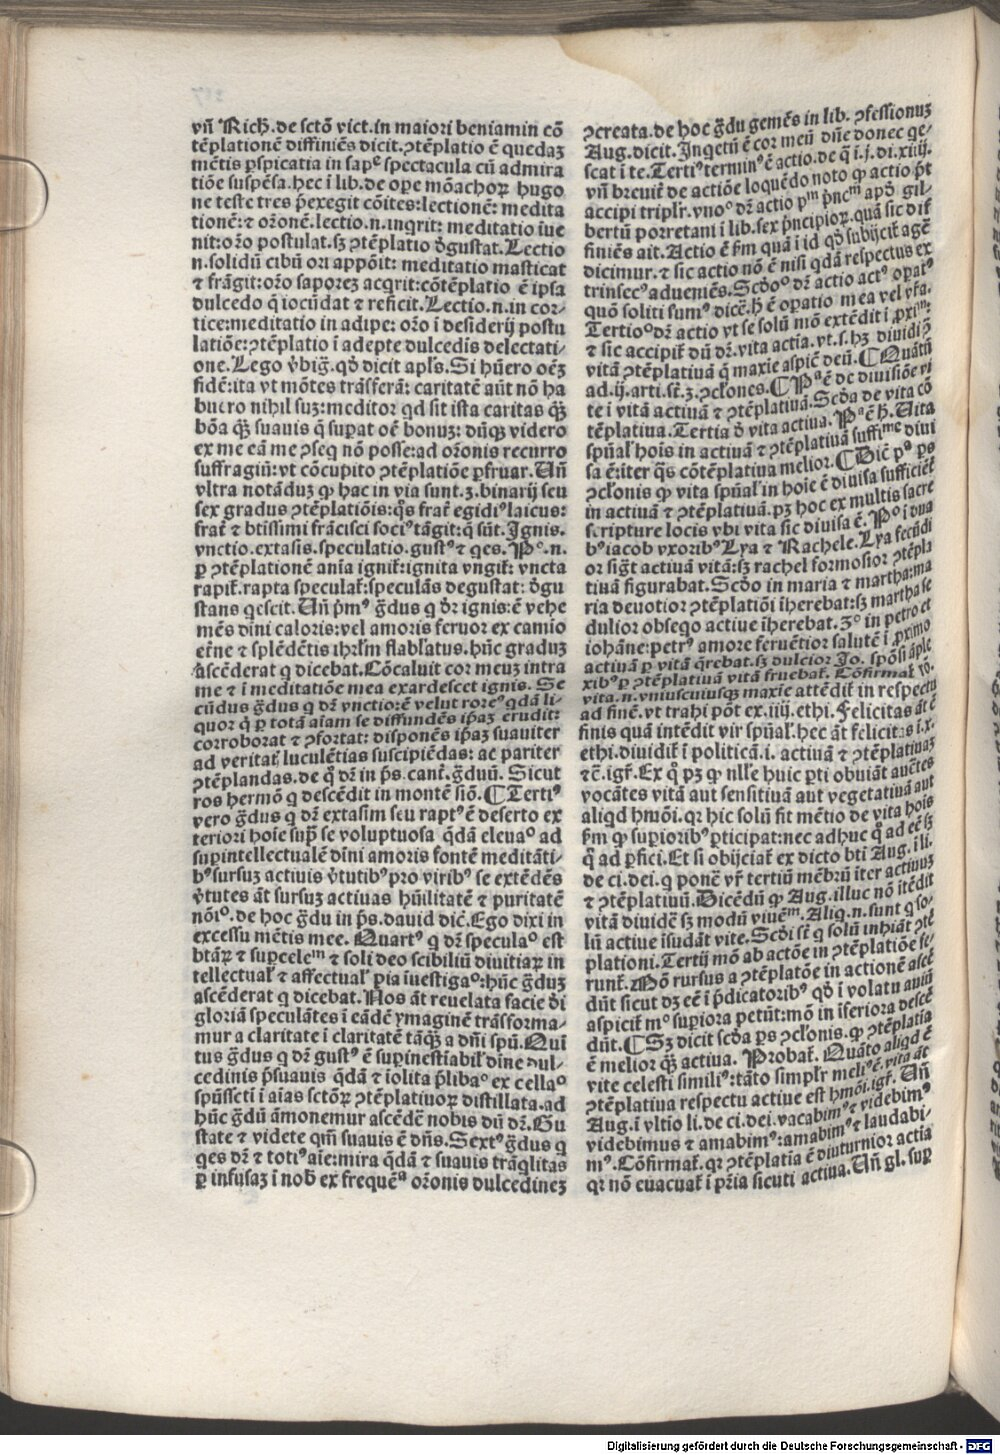 vñ Rich̄. de sctō vict. in maiori beniamin cō
tēplationē diffiniēs dicit. ꝯtēplatio ē quedaꝫ
mētis ꝑspicatia in sapᵉ spectacula cū admira
tiōe suspēsa. hec i lib. de oꝑe mōachoꝝ hugo
ne teste tres p̄exegit cōites: lectionē: medita
tionē: ⁊ orōnē. lectio .n. inqrit: meditatio īue
nit: orō postulat. sꝫ ꝯtēplatio dgustat. Lectio
n. solidū cibū ori appōit: meditatio masticat
⁊ frāgit: orō saporeꝫ acqrit: cōtēplatio ē ipsa
dulcedo q̄ iocūdat ⁊ reficit. Lectio .n. in cor-
tice: meditatio in adipe: orō i desiderij postu
latiōe: ꝯtēplatio i adepte dulcedīs delectati-
one. Lego v̄big̃. qd dicit apl's. Si hūero oēꝫ
fidē: ita vt mōtes trāsferā: caritatē aūt nō ha
buero nihil suꝫ: meditor qd sit ista caritas qꝫ
bōa qꝫ suauis q̄ suꝑat oē bonuꝫ: dūqꝫ videro
ex me eā me ꝯseq nō posse: ad orōnis recurro
suffragiū: vt cōcupito ꝯtēplatiōe ꝑfruar. Uñ
vltra notāduꝫ ꝙ hac in via sunt .3. binarij seu
sex gradus ꝯtēplatiōis: qs̄ frat̄ egidiꝰ laicus:
frat̄ ⁊ btissimi frācisci sociꝰ tāgit: q̄ sūt. Ignis.
vnctio. extasis. speculatio. gustꝰ ⁊ qes. Pº .n.
ꝑ ꝯtēplationē anīa ignit̄: ignita vngit̄: vncta
rapit̄. rapta speculat̄: speculās degustat: dgu
stans qescit. Uñ p̄mꝰ g̃dus q dr̄ ignis: ē vehe
mēs dīni caloris: vel amoris feruor ex camīo
et̄ne ⁊ splēdētis ihrl̄m flabl'atus. hūc graduꝫ
ascēderat q dicebat. Cōcaluit cor meuꝫ intra
me ⁊ i meditatiōe mea exardescet ignis. Se
cūdus g̃dus q dr̄ vnctio: ē velut roreꝰ qdā li-
quor q̄ ꝑ totā aīam se diffundēs ip̄aꝫ erudit:
corroborat ⁊ ꝯfortat: disponēs ip̄aꝫ suauiter
ad veritat̄ luculētias suscipiēdas: ac pariter
ꝯtēplandas. de qº dr̄ in p̄s. cant̄. g̃duū. Sicut
ros hermō q descēdit in montē siō. ¶ Tertiꝰ
vero g̃dus q dr̄ extasim seu raptꝰ ē deserto ex
teriori hoīe sup̄ se voluptuosa qdā eleuaº ad
suꝑintellectualē dīni amoris fontē meditāti-
bꝰ sursuꝫ actiuis v̄tutibꝰ pro viribꝰ se extēdēs
v̄tutes āt sursuꝫ actiuas hūilitatē ⁊ puritatē
nōiº. de hoc g̃du in p̄s. dauid dic̄. Ego dixi in
excessu mētis mee. Quartꝰ q dr̄ speculaº est
btāꝝ ⁊ suꝑceleᵐ ⁊ soli deo scibiliū diuitiaꝝ in
tellectual' ⁊ affectual' ꝑ ia īuestigaº: hūc g̃duꝫ
ascēderat q dicebat. Nos āt reuelata facie dī
gloriā speculātes i eādē ymaginē trāsforma-
mur a claritate i claritatē tāqꝫ a dñi spū. Quī
tus g̃dus q dr̄ gustꝰ ē suꝑinestiabil' dīne dul-
cedinis p̄suauis qdā ⁊ iolita p̄libaº ex cellaº
spūssc̄ti i aīas sctōꝝ ꝯtēplatiuoꝝ distillata. ad
hūc g̃dū āmonemur ascēdē nobis dū dr̄. Gu
state ⁊ videte qm̄ suauis ē dñs. Sextꝰ g̃dus q
qes dr̄ ⁊ totiꝰ aīe: mira qdā ⁊ suauis trāqlitas
ꝑ infusaꝫ i nob̄ ex frequēᵃ orōnis dulcedineꝫ
ꝯcreata. de hoc g̃du gemēs in lib. ꝯfessionuꝫ
Aug. dicit. Inqetū ē cor meū dñe donec qe-
scat i te. Tertiꝰ terminꝰ ē actio. de q̄ i .j. di. xiiij.
vñ breuit̄ de actiōe loquēdo noto ꝙ actio p̄t
accipi tripl'r. vnoº dr̄ actio pᵐ p̄ncᵐ apd gil-
bertū porretani i lib. sex p̄ncipioꝝ. quā sic dif
finiēs ait. Actio ē ſm quā i id qd subijcit̄ agē
dicimur. ⁊ sic actio nō ē nisi qdā respectus ex
trinsecꝰ adueniēs. Scdoº dr̄ actio actꝰ oꝑatꝰ
quō soliti sumꝰ dicē. h̄ ē oꝑatio mea vel vr̄a.
Tertioº dr̄ actio vt se solū mō extēdit i ꝓximꝰ:
⁊ sic accipit̄ dū dr̄. vita actia. vt. s. hꝫ diuidi ꝯ
vitā ꝯtēplatiuā q̄ maxie aspiē deū. ¶ Quātū
ad .ij. arti. st̄. 3. ꝯcl'ones. ¶ Pᵃ ē de diuisiōe vi
te i vitā actiuā ⁊ ꝯtēplatiuā. Scda de vita cō
tēplatiua. Tertia d̄ vita actiua. Pᵃ ē h̄. Uita
spūal' hoīs in actiuā ⁊ ꝯtēplatiuā suffiᵐᵉ diui
sa ē: iter qs̄ cōtēplatiua melior. ¶ Dic̄ pª ꝑs
ꝯcl'onis ꝙ vita spūal' in hoīe ē diuisa sufficiēt̄
in actiuā ⁊ ꝯtēplatiuā. pꝫ hoc ex multis sacre
scripture locis vbi vita sic diuisa ē. Pº i dua
bꝰ iacob vxoribꝰ Lya ⁊ Rachele. Lya fecūdi
or sig̃t actiuā vitā: sꝫ rachel formosior ꝯtēpla
tiuā figurabat. Scdo in maria ⁊ martha: ma
ria deuotior ꝯtēplatiōi īherebat: sꝫ martha se
dulior obseqo actiue īherebat. 3º in petro et
iohāne: petrꝰ amore feruētior salutē i ꝓximo
actiuā ꝑ vitā q̄rebat. sꝫ dulcior Jo. spōsi āple
xibꝰ ꝑ ꝯtēplatiuā vitā fruebat̄. Cōfirmat̄ rō.
vita .n. vniuscuiusqꝫ maxie attēdit̄ in respectu
ad finē. vt trahi pōt ex .iiij. ethi. Felicitas āt ē
finis quā intēdit vir spūal'. hec āt felicitas i .x.
ethi. diuidit̄ i politicā .i. activā ⁊ ꝯtēplatiuaꝫ
⁊c̄. igr̄. Ex qº pꝫ ꝙ nll'e huic ꝑti obuiāt auētes
vocātes vitā aut sensitiuā aut vegetatiuā aut
aliqd hmōi. qr hic solū fit mētio de vita hoīs
ſm ꝙ suꝑioribꝰ ꝑticipat: nec adhuc qº ad eē sꝫ
qº ad ꝑfici. Et si obijciat̄ ex dicto bti Aug. i li.
de ci. dei. q ponē vr̄ tertiū mēbrū īter actiuuꝫ
⁊ ꝯtēplatiuū. Dicēdū ꝙ Aug. illuc nō ītēdit
vitā diuidē sꝫ modū viuēᵐ. Aliq .n. sunt q so-
lū actiue īsudāt vite. Scdi st̄ q solū inhiāt ꝯtē
plationi. Tertij mō ab actōe in ꝯtēplatiōe fe-
runt̄. Mō rursus a ꝯtēplatōe in actionē ascē
dūt sicut dꝫ eē i p̄dicatoribꝰ qd i volatu auiū
aspicit̄ mº suꝑiora petūt: mō in īferiora descē
dūt. ¶ Sꝫ dicit scda ꝑs ꝯcl'onis. ꝙ ꝯtēplatia
ē melior qꝫ actiua. Probat̄. Quāto aliqd ē
vite celesti similiꝰ: tāto simpl'r meliꝰ ē. vita āt
ꝯtēplatiua respectu actiue est hmōi. igr̄. Uñ
Aug. i vltio li. de ci. dei. vacabimꝰ ⁊ videbimꝰ
videbimus ⁊ amabimꝰ: amabimꝰ ⁊ laudabi-
mꝰ. Cōfirmat̄. qr ꝯtēplatia ē diuturnior actia
qr nō euacuat̄ i pr̄ia sicuti actiua. Uñ gl. suꝑ
Digitalisierung gefördert durch die Deutsche Forschungsgemeinschaft - DFG